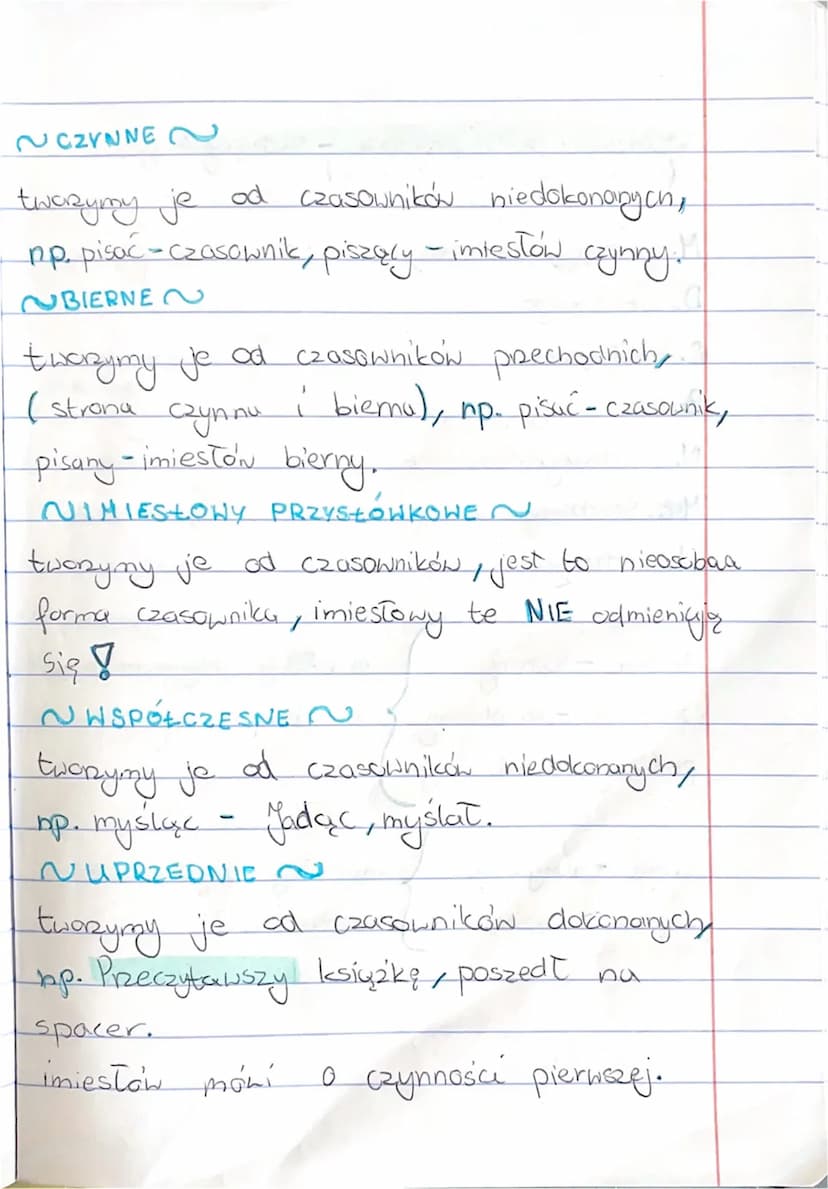 ~ CZYNNE ~
tworzymy je od czasowników niedokonanych,
np. pisać - czasownik, piszący - imiesłów czynny.
~ BIERNE ~
tworzymy je od czasowników przechodnich,
(strona czynna i bierna), np. pisać - czasownik,
pisany - imiesłów bierny.
~ IMIESŁOWY PRZYSŁÓWKOWE ~
tworzymy je od czasowników, jest to nieosobaa
forma czasownika, imiesłowy te NIE odmieniają
się!
~ WSPÓŁCZESNE ~
tworzymy je od czasowników niedokonanych,
np. myśląc - Jadąc, myślał.
~ UPRZEDNIE ~
tworzymy je od czasowników dokonanych,
np. Przeczytawszy książkę, poszedł na
spacer.
imiesłów mówi o czynności pierwszej.